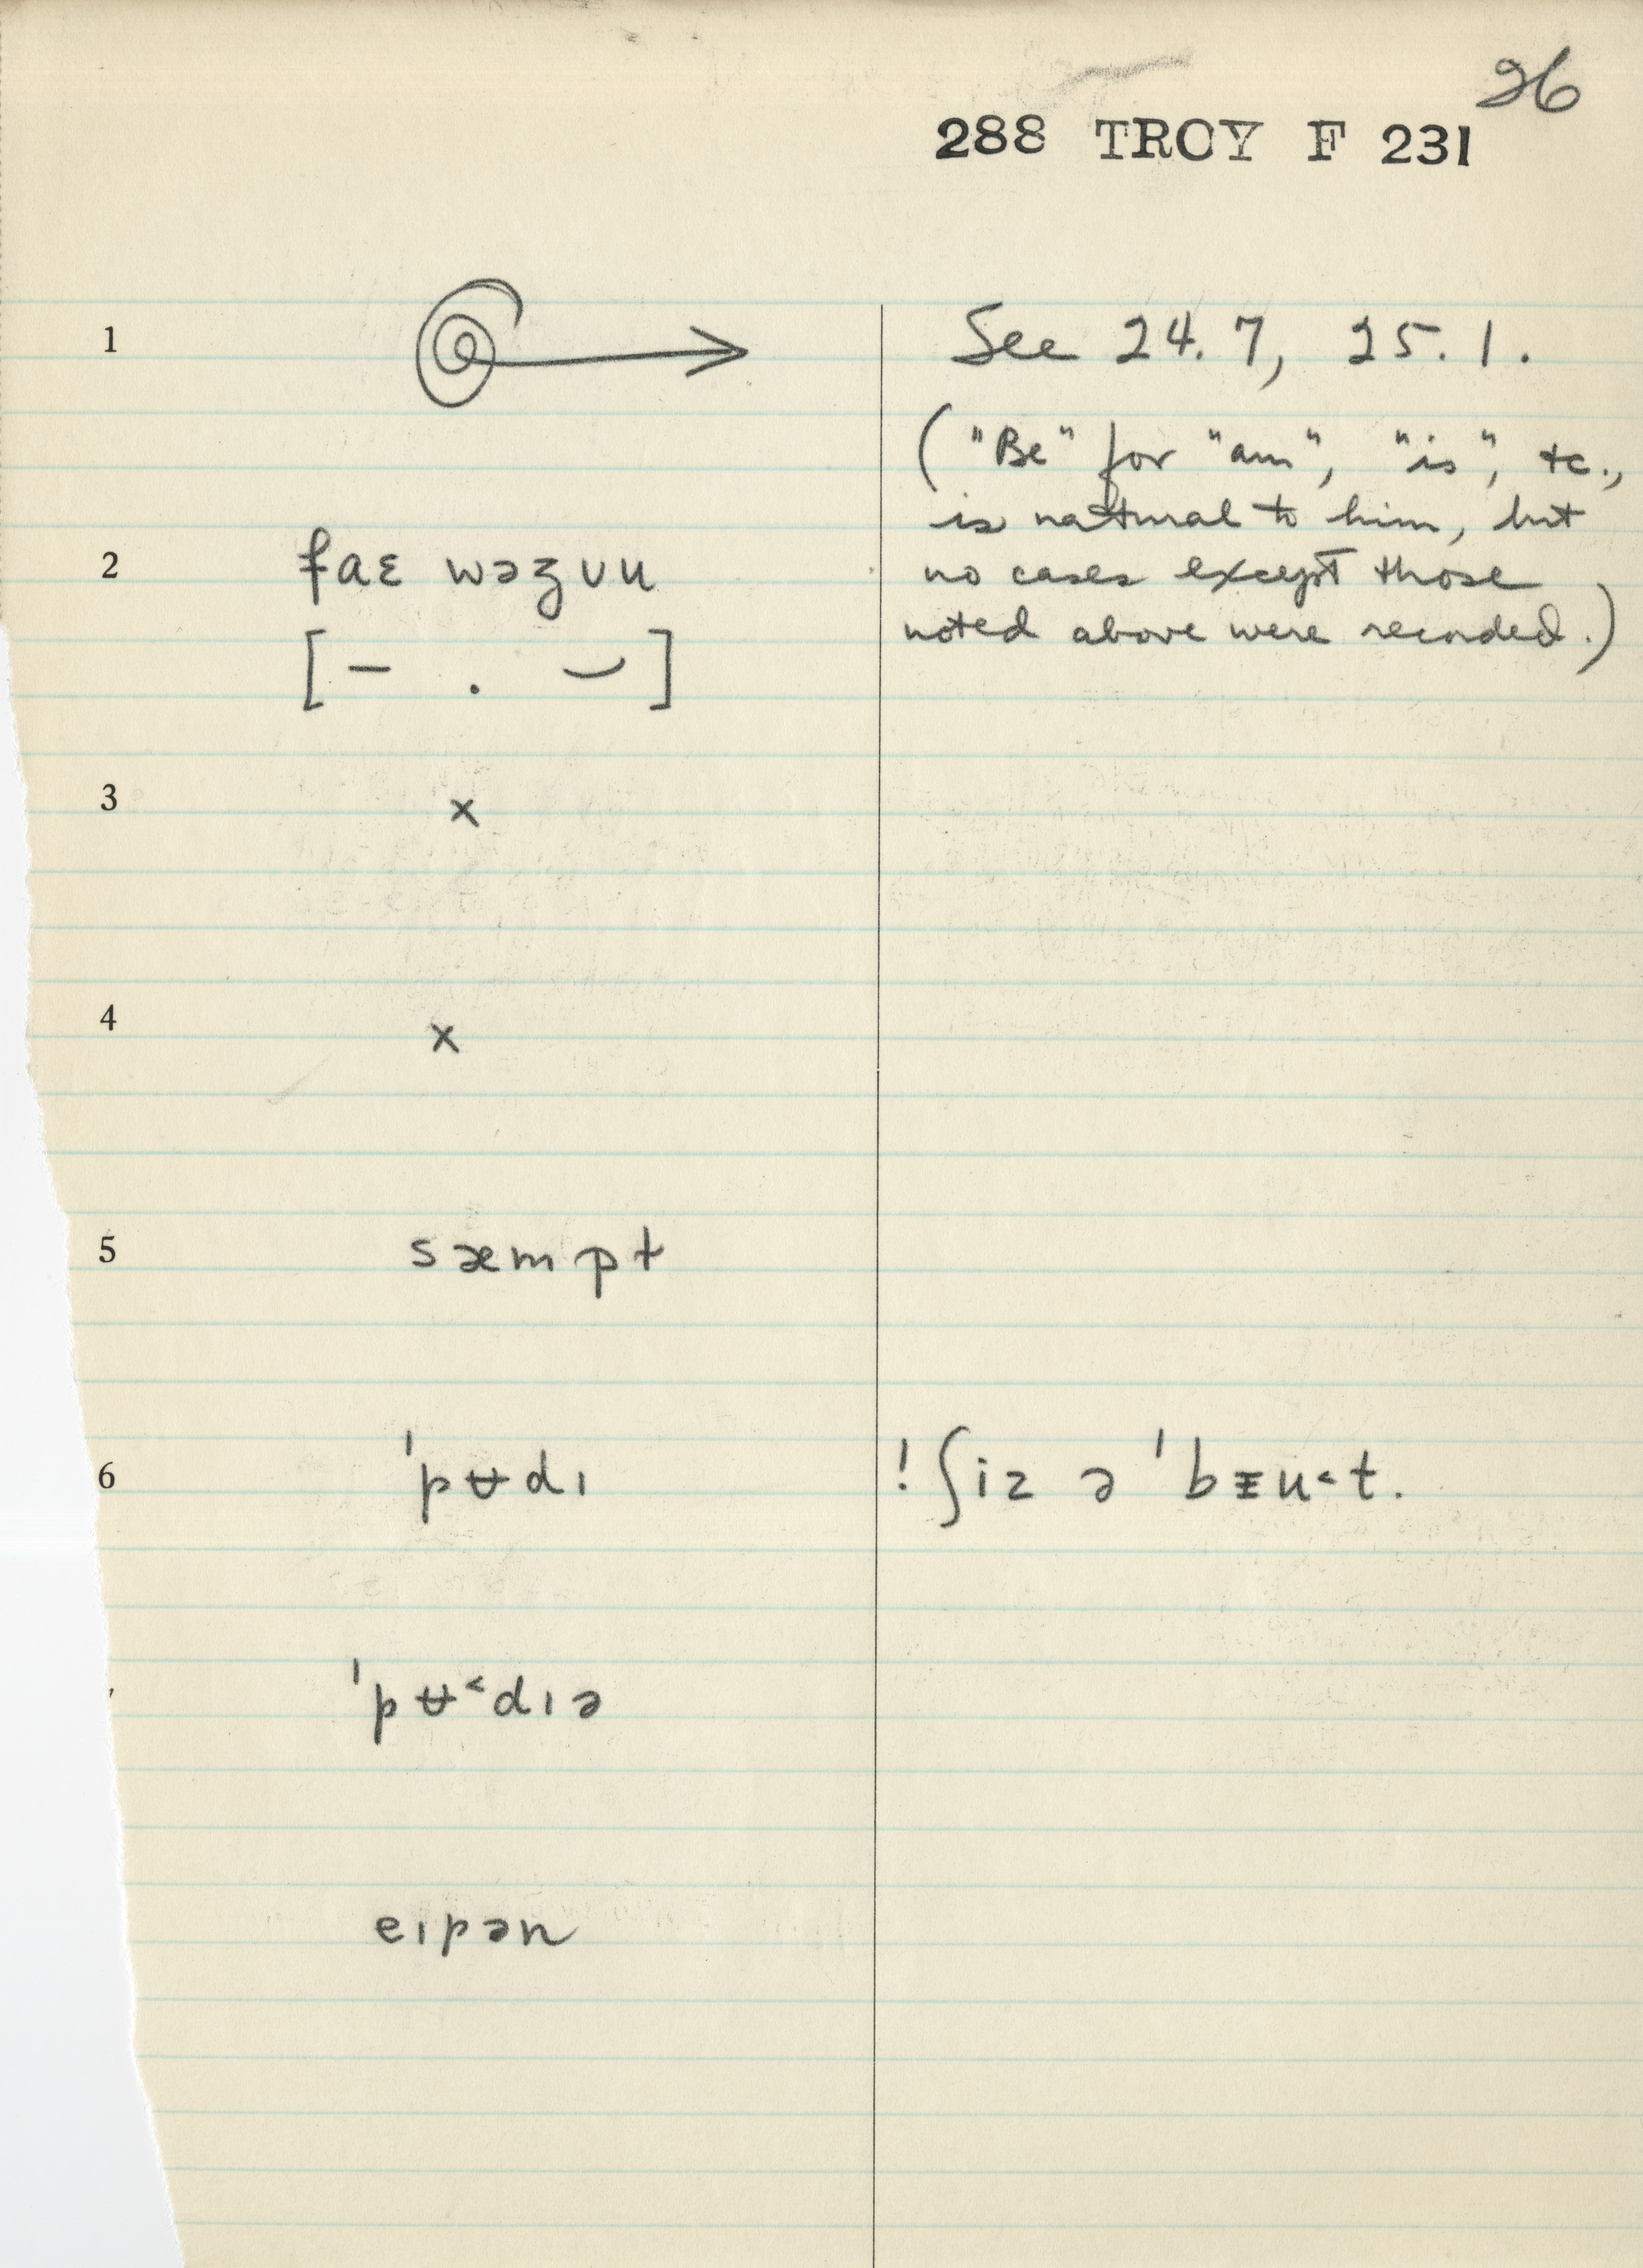 26
288 TROY F 231
1
See 24.7, 25.1.
("Be" for "am", "is", etc.,
is natural to him, but
2 faɛ wəʒ
no cases except those
noted above were recorded.)
[– . ⌣]
3 x
4 x
5 sæmpt
6 ˈpʉdɪ
! ʃiz ə ˈb
ˈpʉ˂dɪə
eɪpən